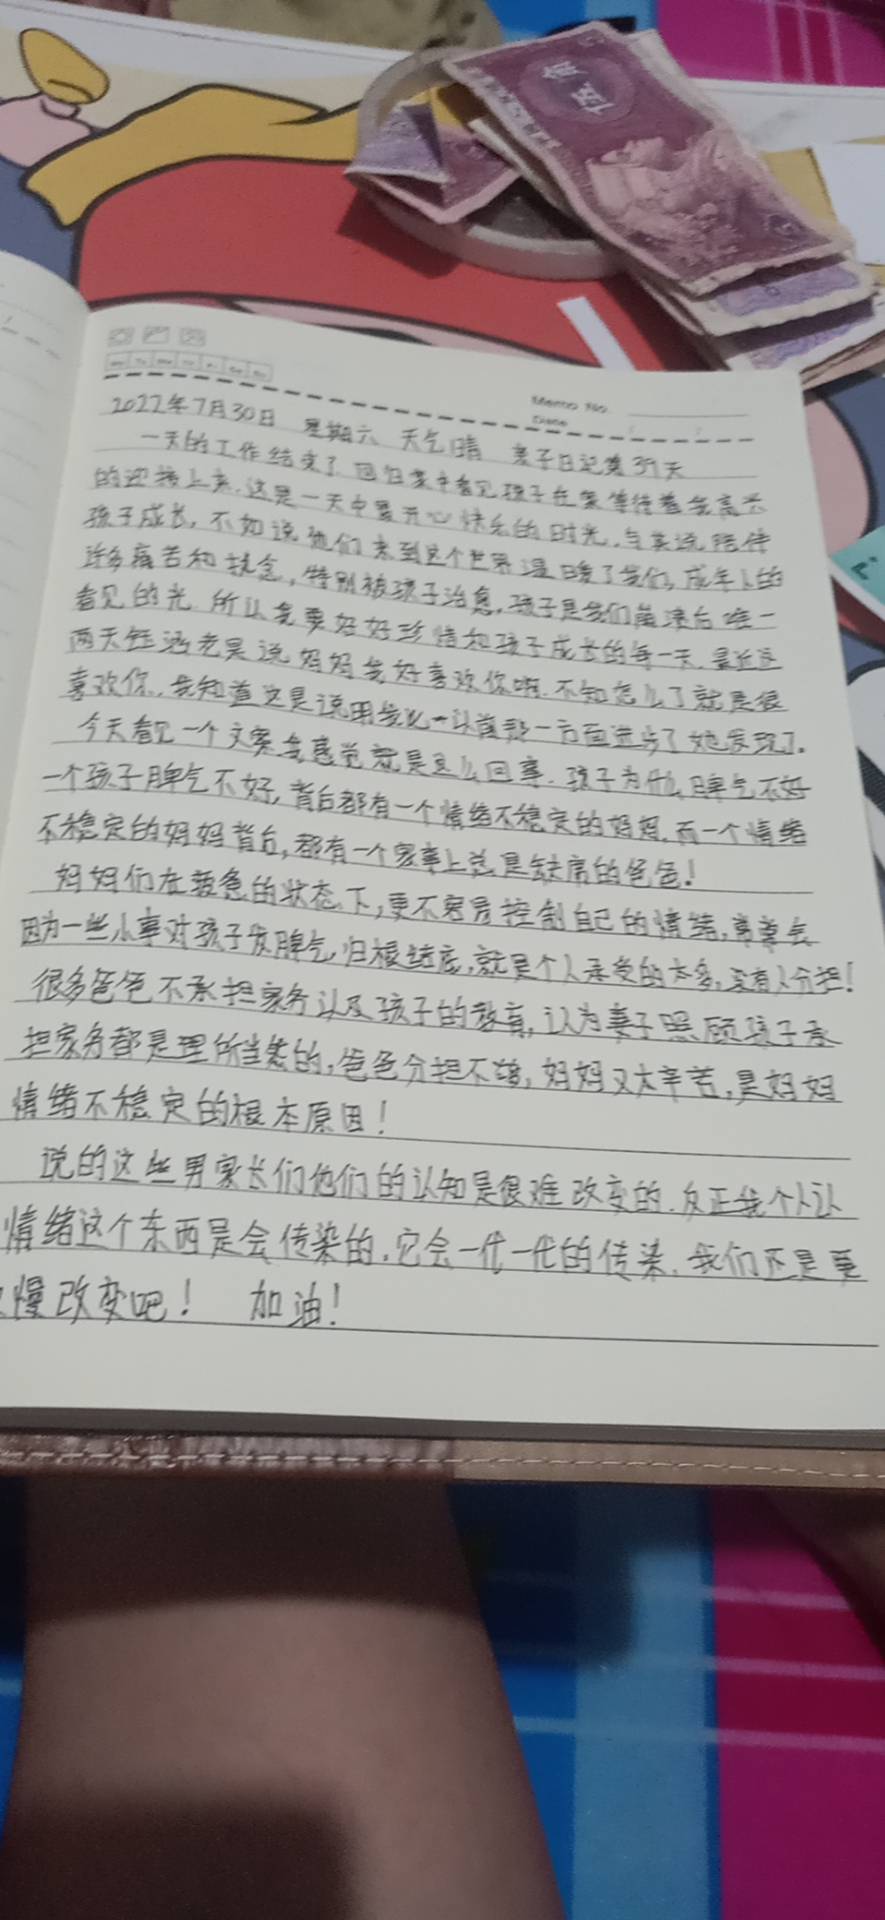 伍角
Memo No.
Date
2022年7月30日 星期六 天气晴 亲子日记第39天
一天的工作结束了回归家中看见孩子在家等待着我高兴
的迎接上来.这是一天中最开心快乐的时光.与其说陪伴
孩子成长,不如说他们来到这个世界温暖了我们,成年人的
许多痛苦和执念,特别被孩子治愈,孩子是我们崩溃后唯一
看见的光 所以我要好好珍惜和孩子成长的每一天.最近这
两天 涵老是说妈妈我好喜欢你啊.不知怎么了就是很
喜欢你,我知道这是说明我 一方面进步了她发现了.
今天看见一个文案我感觉就是这么回事.孩子为什么脾气不好
一个孩子脾气不好,背后都有一个情绪不稳定的妈妈.而一个情绪
不稳定的妈妈背后,都有一个家事上总是缺席的爸爸!
妈妈们在疲惫的状态下,更不容易控制自己的情绪,常常会
因为一些小事对孩子发脾气,归根结底,就是个人承受的太多,没有人分担!
很多爸爸不承担家务以及孩子的教育,认为妻子照顾孩子承
担家务都是理所当然的,爸爸分担不够,妈妈又太辛苦,是妈妈
情绪不稳定的根本原因!
说的这些男家长们他们的认知是很难改变的.反正我个人认
情绪这个东西是会传染的.它会一代一代的传染.我们还是要
慢改变吧! 加油!